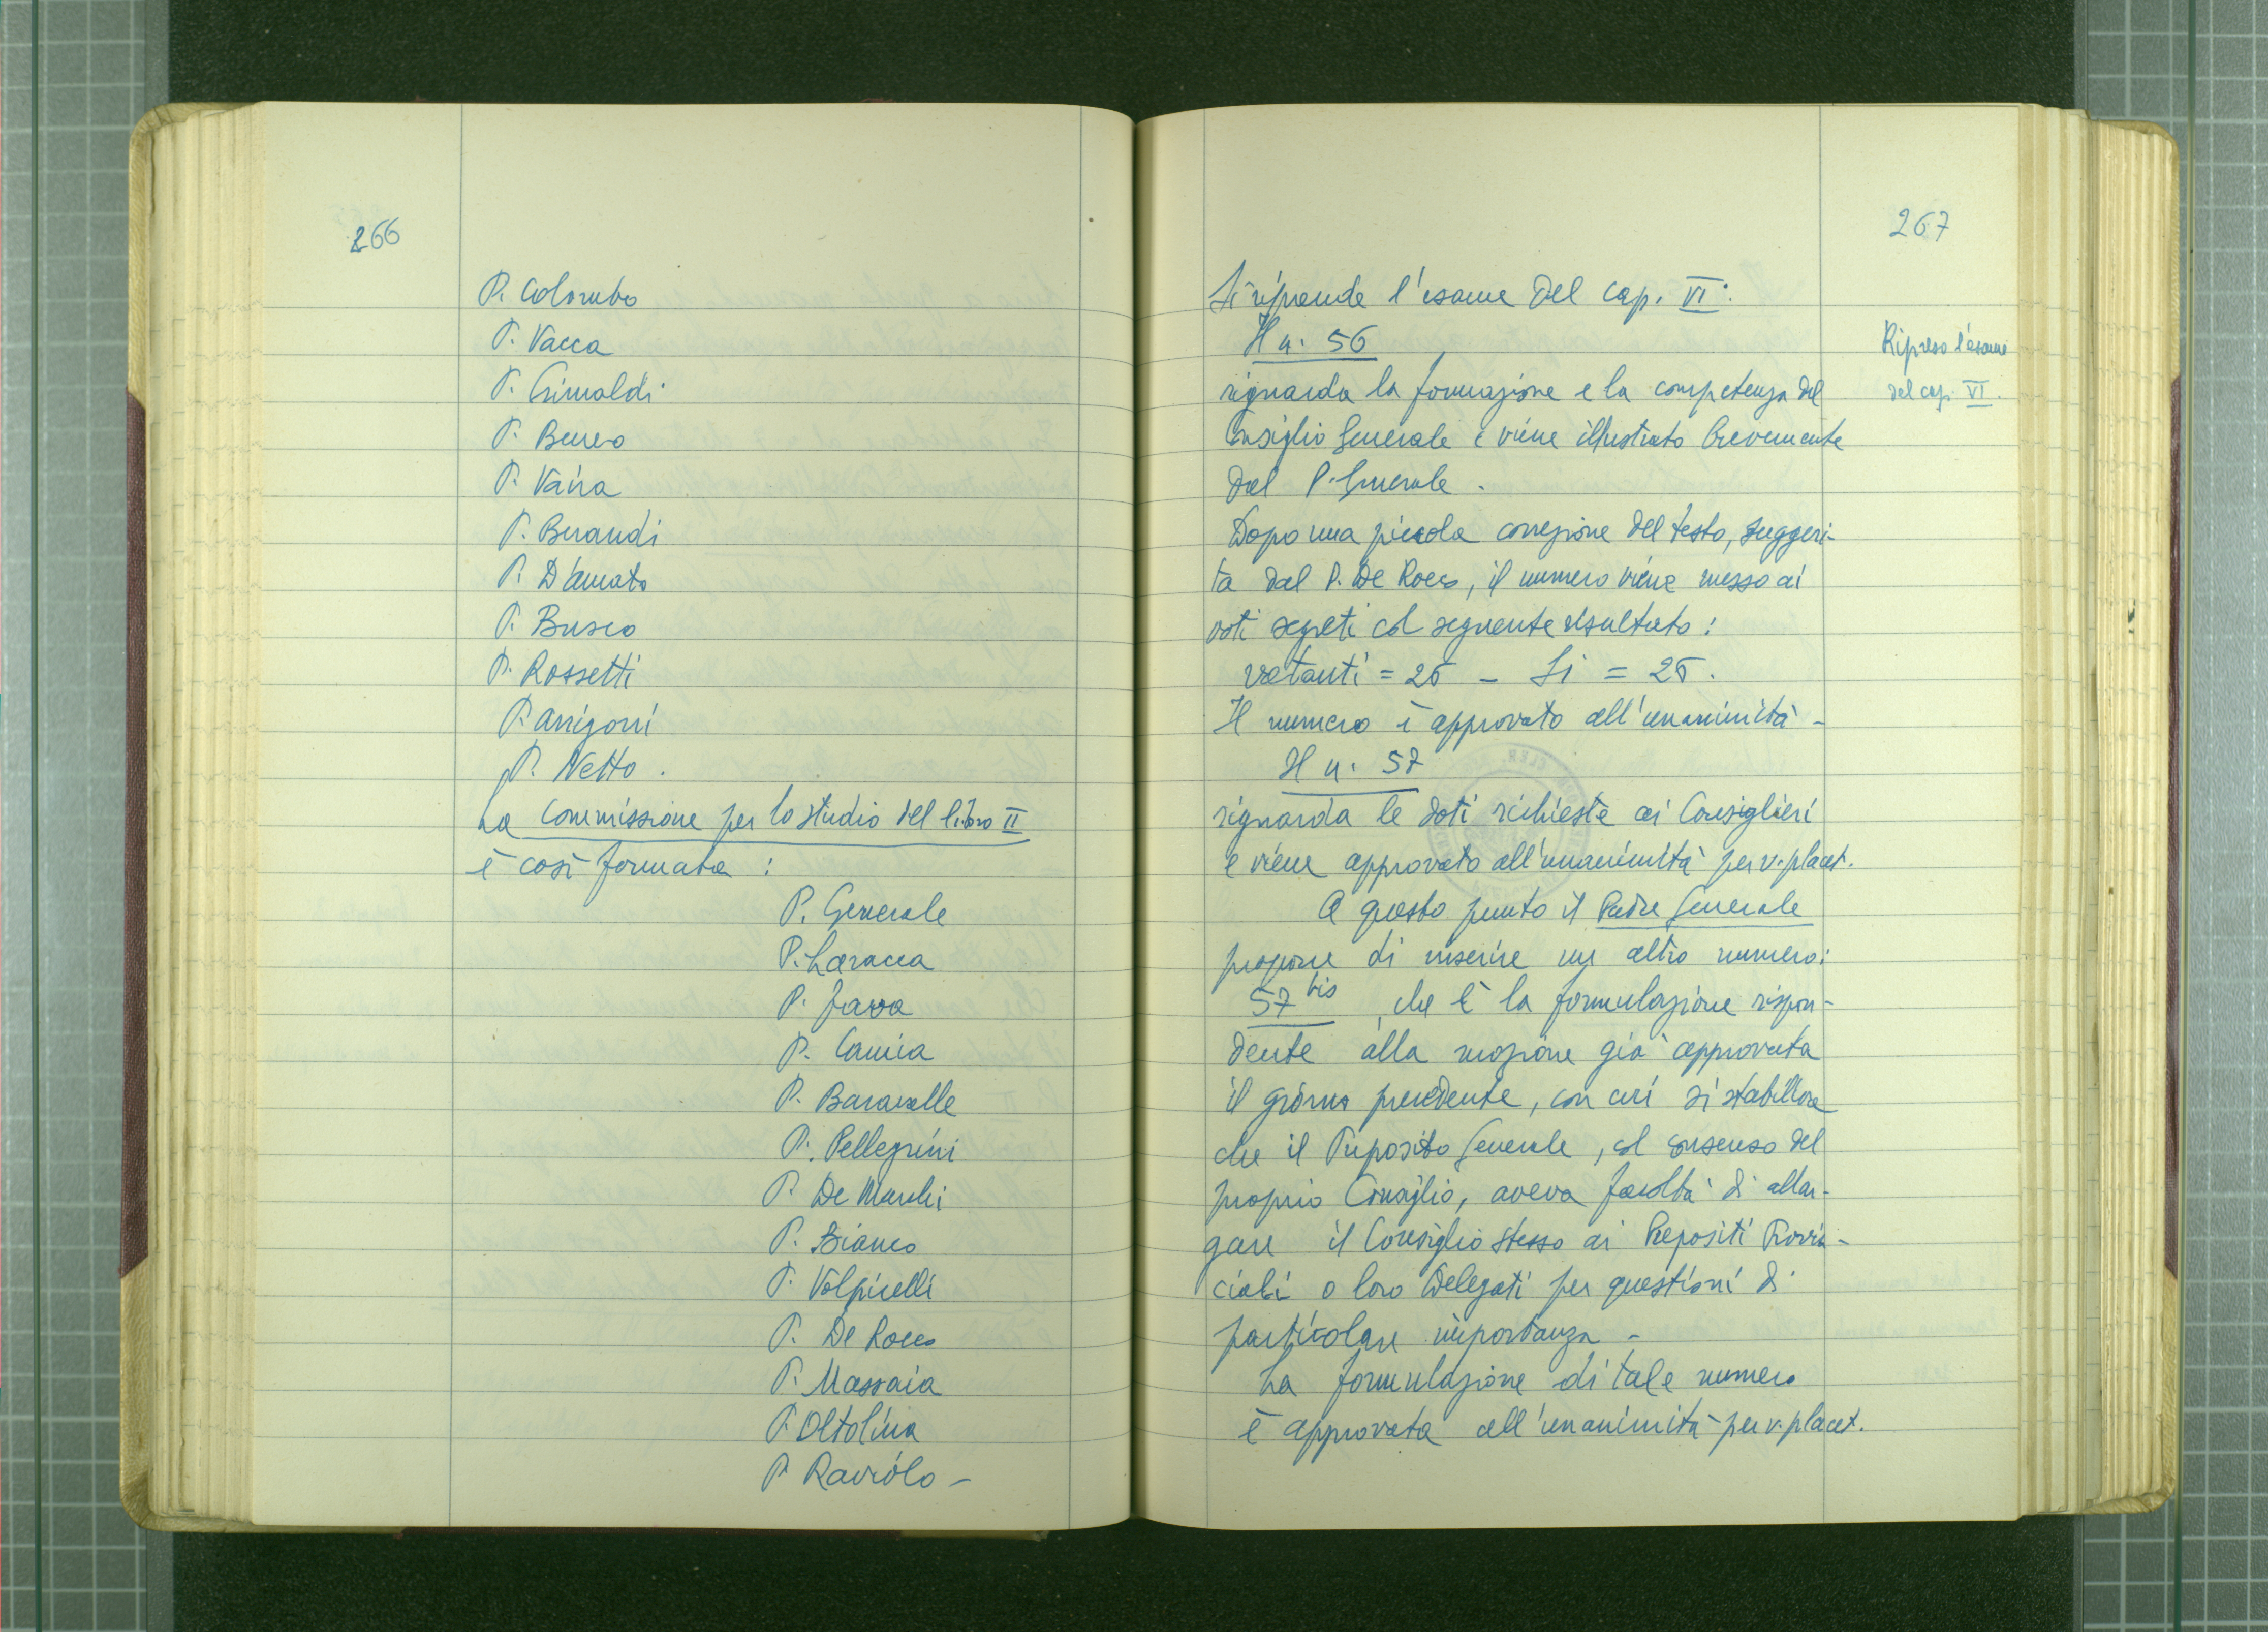 266
P. Colombo
P. Vacca
P. Grimaldi
P. Busco
P. Vaira
P. Beraudi
P. D'Amato
P. Busco
P. Rossetti
P. Arrigoni
P. Netto.
La Commissione per lo studio del libro II
è così formata:
P. Generale
P. Laracca
P. Fava
P. Camia
P. Baravalle
P. Pellegrini
P. De Marchi
P. Bianco
P. Volpicelli
P. De Rocco
P. Massaia
P. Oltolina
P. Raviolo -
267
Si riprende l'esame del cap. VI.
Il n. 56
riguarda la formazione e la competenza del
Consiglio Generale e viene illustrato brevemente
dal P. Generale.
Dopo una piccola correzione del testo, suggeri-
ta dal P. De Rocco, il numero viene messo ai
voti segreti col seguente risultato:
votanti = 25 - Si = 25.
Il numero è approvato all'unanimità -
Il n. 57
riguarda le doti richieste ai Consiglieri
e viene approvato all'unanimità per v. placet.
A questo punto il Padre Generale
propone di inserire un altro numero:
57 bis, che è la formulazione rispon-
dente alla mozione già approvata
il giorno precedente, con cui si stabiliva
che il Preposito Generale, col consenso del
proprio Consiglio, aveva facoltà di allar-
gare il Consiglio stesso ai Prepositi Provin-
ciali o loro Delegati per questioni di
particolare importanza -
La formulazione di tale numero
è approvata all'unanimità per v. placet.
Ripreso l'esame
del cap. VI.